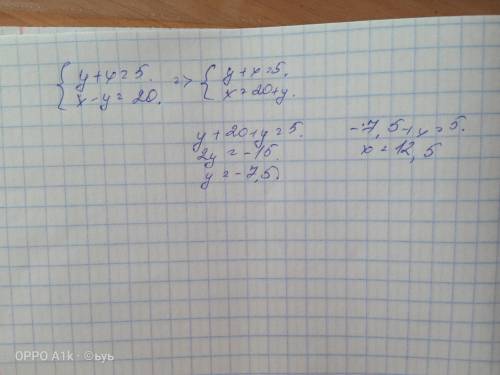 { y+x=5. => { y+x=5.
x-y=20. x=20+y.
y+20+y=5.
2y=-15.
y=-7,5.
-7,5+x=5.
x=12,5
OPPO A1k · ©ьуь